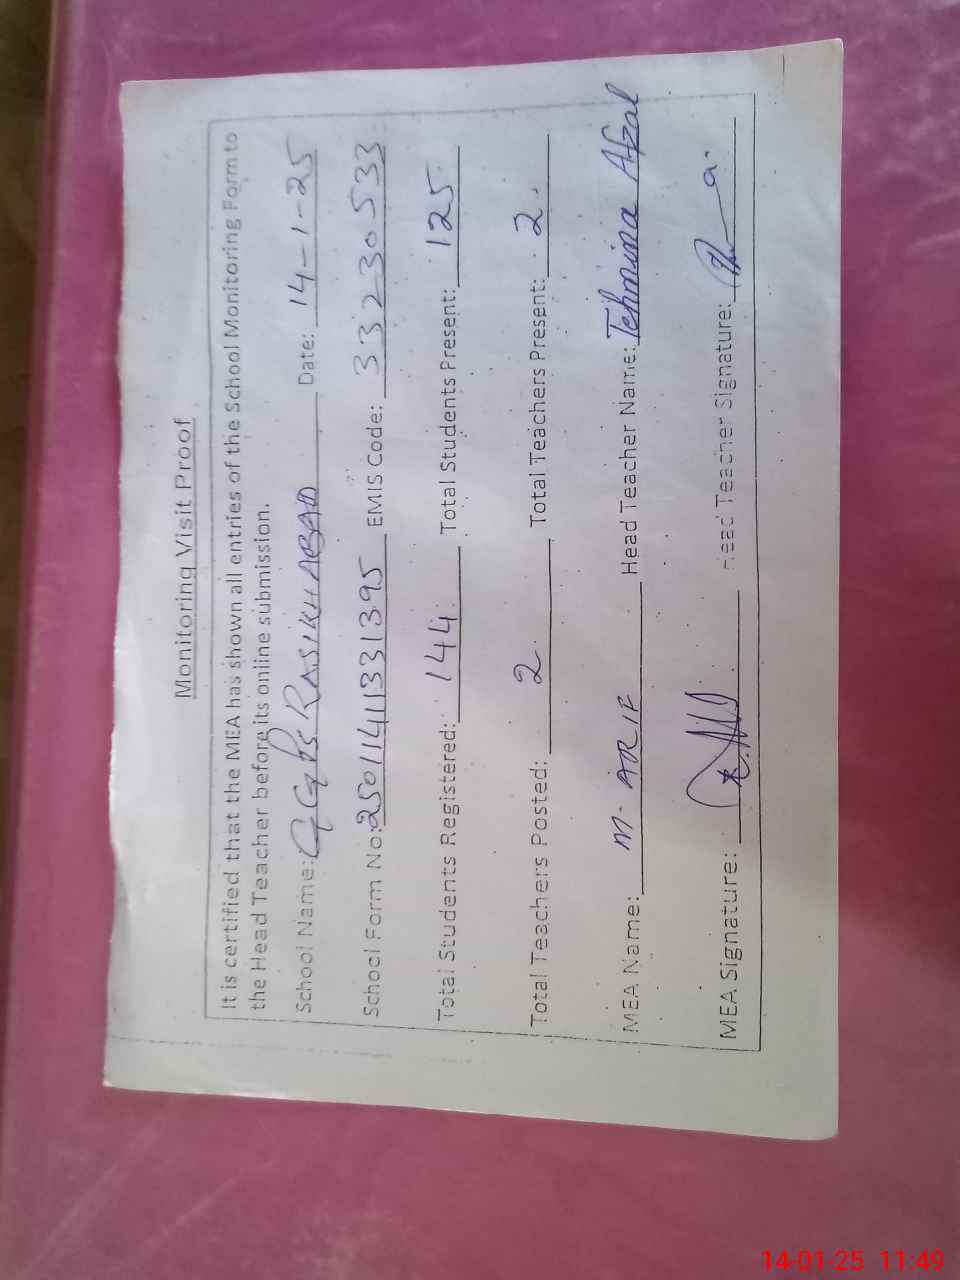 Monitoring Visit Proof
It is certified that the MEA has shown all entries of the School Monitoring Form to
the Head Teacher before its online submission.
School Name: GGPS RASIKHABAD Date: 14-1-25
School Form No: 2501141331395 EMIS Code: 33230533
Total Students Registered: 144 Total Students Present: 125
Total Teachers Posted: 2 Total Teachers Present: 2
MEA Name: M. ARIF Head Teacher Name: Tehmina Afzal
MEA Signature: Head Teacher Signature:
14-01-25 11:49